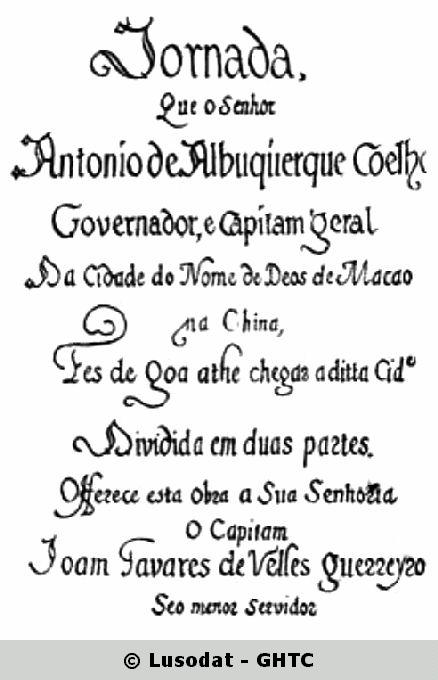 Jornada,
Que o Senhor
Antonio de Albuquerque Coelho
Governador, e Capitam geral
Da Cidade do Nome de Deos de Macao
na China,
Fes de Goa athe chegar a ditta Cidᵉ
Dividida em duas partes.
Offerece esta obra a Sua Senhoria
O Capitam
Joam Tavares de Velles guerreyro
Seo menor servidor
© Lusodat - GHTC